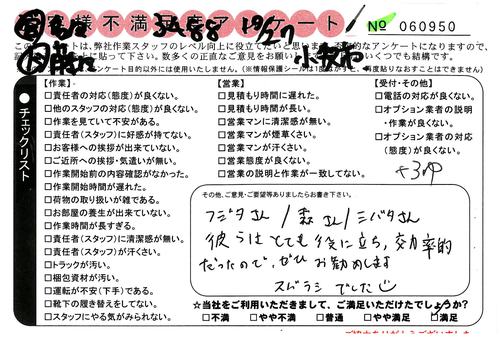 客様不満足度アンケート
3488 10/27
No 060950
このアンケートは、弊社作業スタッフのレベル向上に役立てたいと思い
アンケート目的以外には使用いたしません。(※情報保護シールは1度はがすと、再度貼りなおすことはできません)
チェックリスト
【作業】
□責任者の対応(態度)が良くない。
□他のスタッフの対応(態度)が良くない。
□作業を見ていて不安がある。
□責任者(スタッフ)に好感が持てない。
□お客様への挨拶が出来ていない。
□ご近所への挨拶・気遣いが無い。
□作業開始前の内容確認がなかった。
□作業開始時間が遅れた。
□荷物の取り扱いが雑である。
□お部屋の養生が出来ていない。
□作業時間が長すぎる。
□責任者(スタッフ)に清潔感が無い。
□責任者(スタッフ)が汗くさい。
□トラックが汚い。
□梱包資材が汚い。
□運転が不安(下手)である。
□靴下の履き替えをしてない。
□スタッフにやる気がみられない。
【営業】
□見積もり時間に遅れた。
□見積もり時間が長い。
□営業マンに清潔感が無い。
□営業マンが煙草くさい。
□営業マンが汗くさい。
□営業態度が良くない。
□営業の説明と作業が一致してない。
【受付・その他】
□電話の対応が良くない。
□オプション業者の説明
・作業が良くない。
□オプション業者の対応
(態度)が良くない。
その他、ご意見・ご要望等ありましたらお書き下さい。
フジタさん/森さん/シバタさん
彼らはとても役に立ち、効率的
だったので、ぜひ お勧めします
スバラシ でした
☆当社をご利用いただきまして、ご満足いただけたでしょうか?
□不満 □やや不満 □普通 □やや満足 □満足